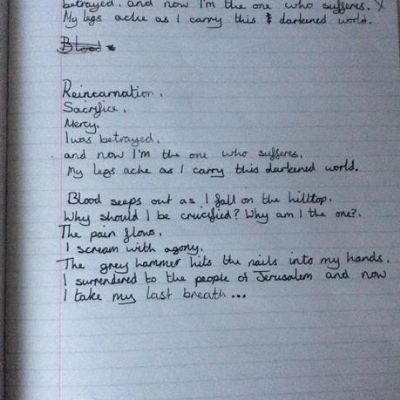 betrayed. and now I'm the one who sufferes. X
My legs ache as I carry this darkened world.
Blood
Reincarnation.
Sacrifice.
Mercy.
I was betrayed.
and now I'm the one who sufferes.
My legs ache as I carry this darkened world.
Blood seeps out as I fall on the hilltop.
Why should I be crucified? Why am I the one?.
The pain flows.
I scream with agony.
The grey hammer hits the nails into my hands.
I surrendered to the people of Jerusalem and now
I take my last breath...